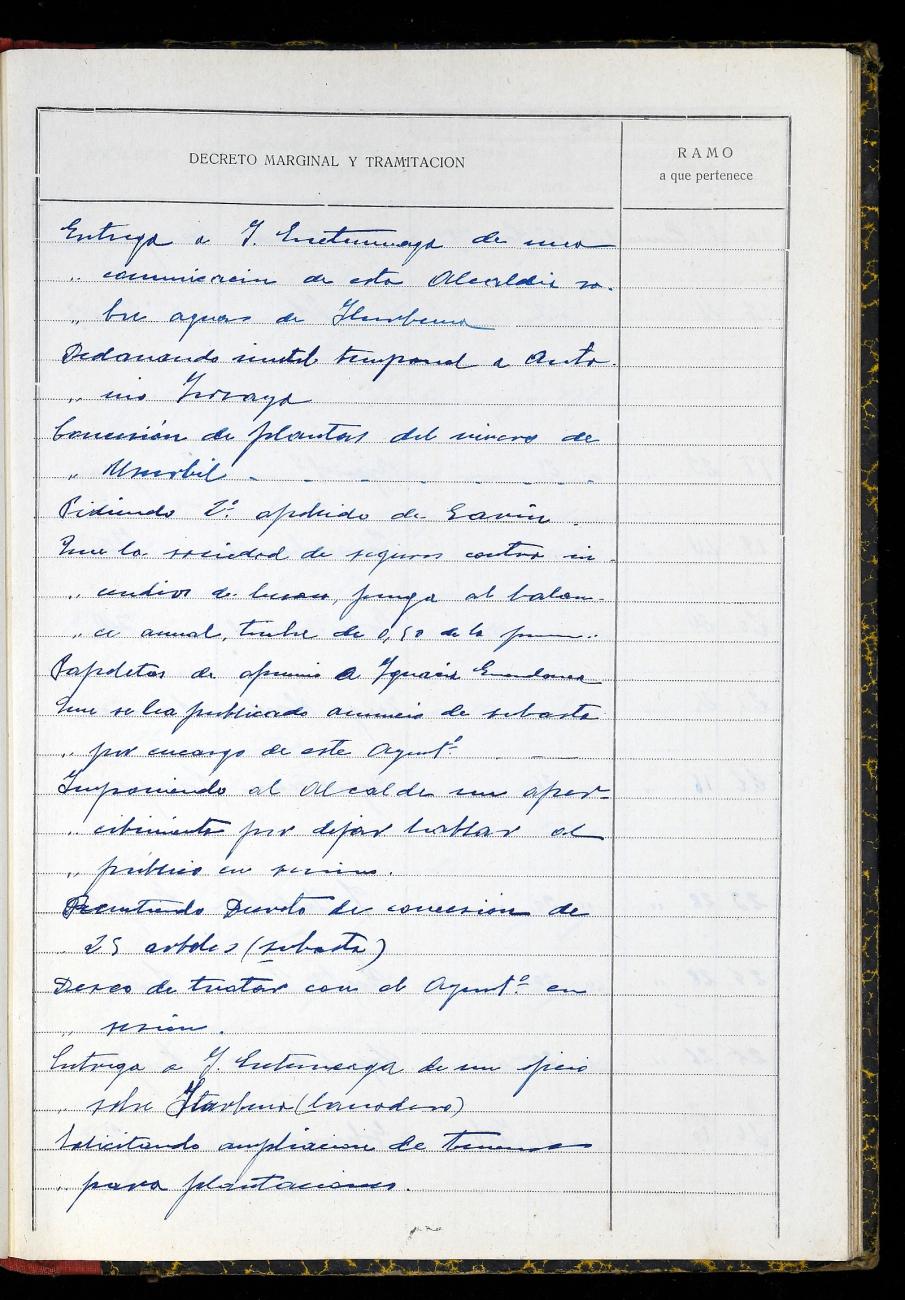 DECRETO MARGINAL Y TRAMITACION
RAMO
a que pertenece
Entrega a J. de una
" comunicación de esta Alcaldía so-
" bre aguas de Iturbera
Declarando inutil temporal a Anto-
" nio
Concesión de plantas del vivero de
" Usurbil
Pidiendo 2º apellido de Gavin
Que la sociedad de seguros contra in-
" cendios de ponga al balan-
" ce anual, timbre de 0,50 de la
Papeletas de apremio a Ignacio
Que se ha publicado anuncio de subasta
" por encargo de este Ayuntº
Imponiendo al Alcalde un aper-
" cibimiento por dejar hablar al
" público en sesión.
Decreto de concesión de
25 arboles (subasta)
Deseo de tratar con el Ayuntº en
" sesión.
Entrega a J. de un oficio
" sobre Iturbera
Solicitando ampliacion de
" para plantaciones.